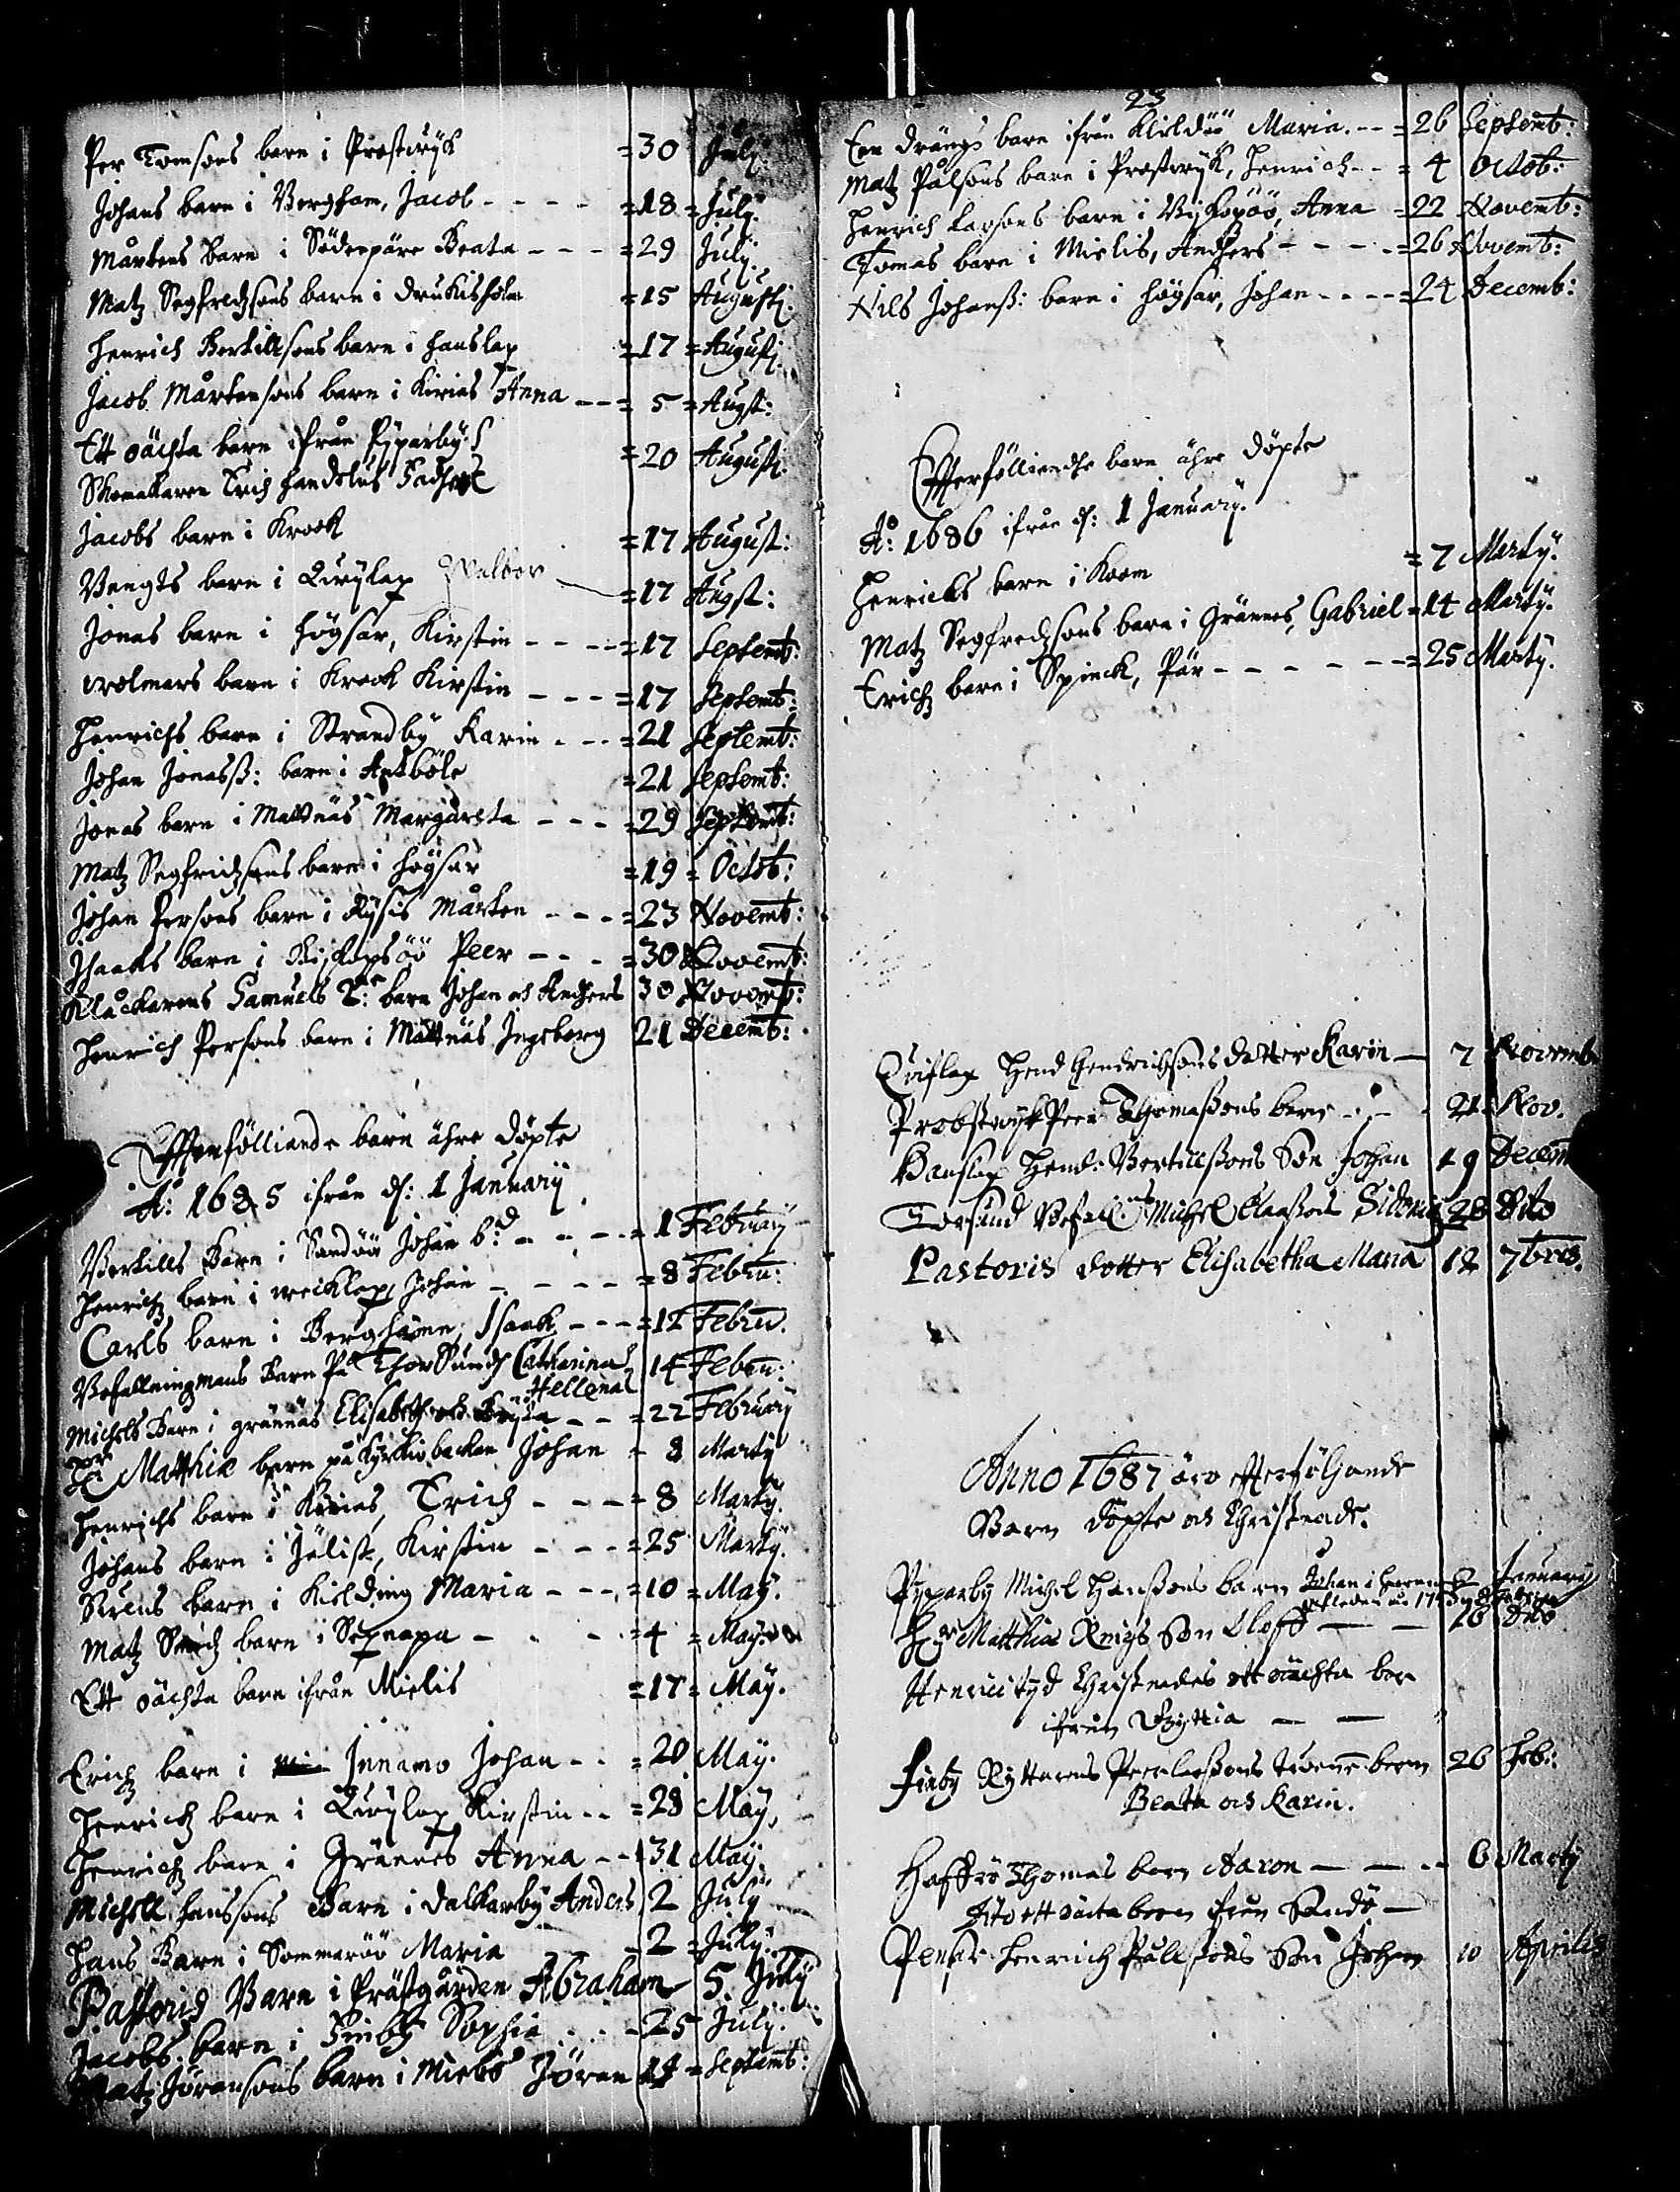 Per Tomsons barn i Prostwyk =30 July.
Johans barn i Bergham, Jacob - - - - =18 = July.
Mårtens barn i Söderpäre Beata - - - =29 July.
Matz Segfredsons barn i Drukisholm =15 Augusti.
Henrich Bertillsons barn i Hanslax =17 = Augusti.
Jacob Mårtensons barn i Kirias Anna - - = 5 = Augst:
Ett oächta barn ifrån Pyparby
=20 Augusti.
Skomakaren Erich Fadher
Jacobs barn i Krook =17 August:
Bengts barn i Qwylax Walbor =17 Augst:
Jonas barn i Högsar, Kirstin - - - - =17 Septemb:
Wolmars barn i Krook Kirstin - - - =17 Septemb:
Henrichs barn i Strandby Karin - - - =21 Septemb:
Johan Jonasß: barn i Antböle =21 Septemb:
Jonas barn i Mattnäs Margareta - - - =29 Septemb:
Matz Segfridsons barn i Högsar =19 = Octob:
Johan Persons barn i Rysis Mårten - - - =23 Novemb:
Isaaks barn i Biskopsöö Peer - - - =30 Novemb:
Klåckarens Samuels barn Johan och Anders 30 Novemb:
Henrich Persons barn i Mattnäs Ingeborg 21 Decemb:
Effterfölliande barn ähre döpte
Aº: 1685 ifrån d: 1 January
Bertills Barn i Sandöö Johan - - - = 1 February
Henrichz barn i Johan - - - - = 8 Febru:
Carls barn i Berghamn, Isaak - - - =12 Febru.
Befallningmans Barn På Thorsundh Catharina 14 Febru:
Hellena
Michels Barn i grännäs Elisabeth - - =22 February
Hr Matthiæ barn på Kyrkiobacken Johan - 8 Marty
Henrichs barn i Kirias, Erich - - - - 8 Marty.
Johans barn i Jälist, Kirstin - - - =25 Marty.
barn i Kielding Maria - - - =10 = May.
Matz barn i - - - =4 = May.
Ett oächta barn ifrån Mielis =17 = May.
Erichz barn i Innamo Johan - - =20 May.
Henrichz barn i Qwylax Kirstin - - =28 May,
Henrichz barn i Grännes Anna - - 31 May.
Michell Hanssons Barn i Dalkarby Anders 2 July
Hans Barn i Sommaröö Maria =2 = July.
Pastoris Barn i Prästgården Abraham 5. July
Jacobs barn i Finby Sophia - - - 25 July.
Matz Jöransons barn i Mielis Jöran 14 = Septemb:
23
Een drängs barn ifrån Kieldöö Maria. - - =26 Septemb:
Matz Pålsons barn i Prostwyk, Henrich - - = 4 Octob:
Henrich Larsons barn i Byskopöö, Anna =22 Novemb:
Tomas barn i Mielis, Anders - - - - =26 Novemb:
Nils Johanß: barn i Högsar, Johan - - - - =24 Decemb:
Effterfölliandhe barn ähre döpte
Aº: 1686 ifrån d: 1 January.
Henricks barn i Korm = 7 Marty.
Matz Segfredsons barn i Grännes, Gabriel =14 Marty.
Erichz barn i Spinck, Pär - - - - - - =25 Marty.
Quiflax Hend Hendrichsons dotter Karin — 7 Novemb
Probstwyk Peer Thomaßons barn - - - 21 Nov.
Hanslax Hend: Bertillßons Son Johan 19 Decem
Torsund Befall: Michel Claaßons Sidonia 28 Dito
Pastoris dotter Elisabetha Maria 12 7bris.
Anno 1687 äro effterföljande
Barn döpte och Christnade.
Pyparby Michel Hanßons barn Johan 2 January
Hr Matthiæ Son Oloff — — 16 Dito
Henrici tyd Christnades ett oächta barn
ifrån Byttia — —
Finby Ryttarens Peer Larßons twenne barn 26 Feb:
Beata och Karin.
Haffrö Thomas barn Aaron — — - 6 Marty
Dito ett oäcta barn ifrån Sandö —
Pensar Henrich Pållsons Son Johan 10 Aprilis